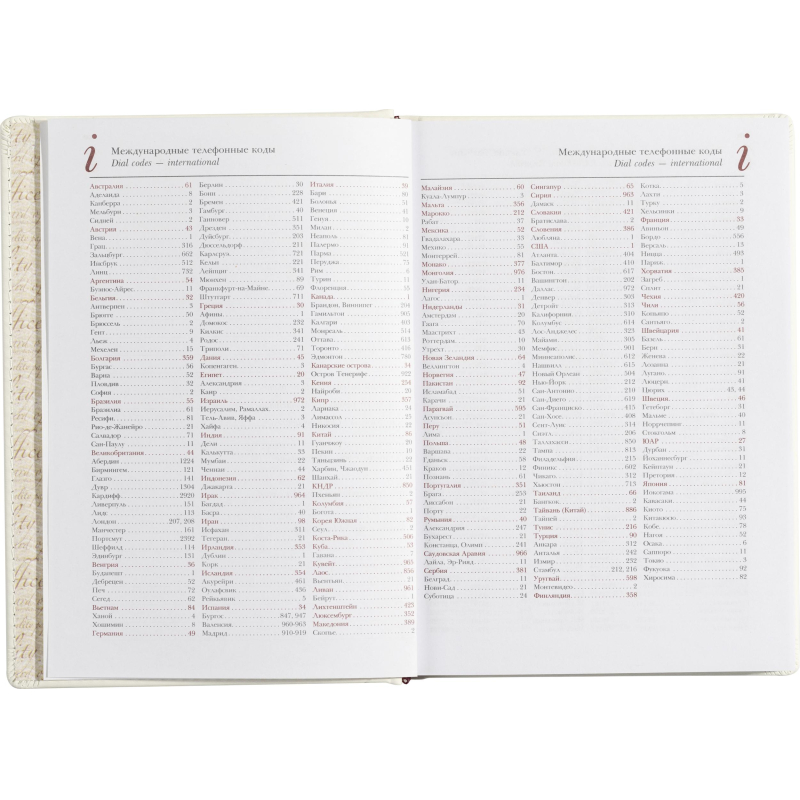 i
Международные телефонные коды
Dial codes — international
Австралия 61
Аделаида 8
Канберра 2
Мельбурн 3
Сидней 2
Австрия 43
Вена 1
Грац 316
Зальцбург 662
Инсбрук 512
Линц 732
Аргентина 54
Буэнос-Айрес 11
Бельгия 32
Антверпен 3
Брюгге 50
Брюссель 2
Гент 9
Льеж 4
Мехелен 15
Болгария 359
Бургас 56
Варна 52
Пловдив 32
София 2
Бразилия 55
Бразилиа 61
Ресифи 81
Рио-де-Жанейро 21
Салвадор 71
Сан-Паулу 11
Великобритания 44
Абердин 1224
Бирмингем 121
Глазго 141
Дувр 1304
Кардифф 2920
Ливерпуль 151
Лидс 113
Лондон 207, 208
Манчестер 161
Портсмут 2392
Шеффилд 114
Эдинбург 131
Венгрия 36
Будапешт 1
Дебрецен 52
Печ 72
Сегед 62
Вьетнам 84
Ханой 4
Хошимин 8
Германия 49
Берлин 30
Бонн 228
Бремен 421
Гамбург 40
Ганновер 511
Дрезден 351
Дуйсбург 203
Дюссельдорф 211
Карлсруэ 721
Кельн 221
Лейпциг 341
Мюнхен 89
Франкфурт-на-Майне 69
Штутгарт 711
Греция 30
Афины 1
Домокос 232
Килкис 341
Родос 241
Триполи 71
Дания 45
Копенгаген 3
Египет 20
Александрия 3
Каир 2
Израиль 972
Иерусалим, Рамаллах 2
Тель-Авив, Яффа 3
Хайфа 4
Индия 91
Дели 11
Калькутта 33
Мумбаи 22
Ченнаи 44
Индонезия 62
Джакарта 21
Ирак 964
Багдад 1
Басра 40
Иран 98
Исфахан 311
Тегеран 21
Ирландия 353
Дублин 1
Корк 21
Исландия 354
Акурейри 461
Оулафсвик 436
Рейкьявик 5
Испания 34
Бургос 847, 947
Валенсия 960-963
Мадрид 910-919
Италия 39
Бари 80
Болонья 51
Венеция 41
Генуя 10
Милан 2
Неаполь 81
Палермо 91
Парма 521
Перуджа 75
Рим 6
Турин 11
Флоренция 55
Канада 1
Брандон, Виннипег 204
Гамильтон 905
Калгари 403
Монреаль 514
Оттава 613
Торонто 416
Эдмонтон 780
Канарские острова 34
Остров Тенерифе 922
Кения 254
Найроби 20
Кипр 357
Ларнака 24
Лимассол 25
Никосия 22
Китай 86
Гуанчжоу 20
Пекин 10
Тяньцзинь 22
Харбин, Чжаодун 451
Шанхай 21
КНДР 850
Пхеньян 2
Колумбия 57
Богота 1
Корея Южная 82
Сеул 2
Коста-Рика 506
Куба 53
Гавана 7
Кувейт 965
Лаос 856
Вьентьян 21
Ливан 961
Бейрут 1
Лихтенштейн 423
Люксембург 352
Македония 389
Скопье 2
i
Международные телефонные коды
Dial codes — international
Малайзия 60
Куала-Лумпур 3
Мальта 356
Марокко 212
Рабат 37
Мексика 52
Гвадалахара 33
Мехико 55
Монтеррей 81
Монако 377
Монголия 976
Улан-Батор 11
Нигерия 234
Лагос 1
Нидерланды 31
Амстердам 20
Гаага 70
Маастрихт 43
Роттердам 10
Утрехт 30
Новая Зеландия 64
Веллингтон 4
Норвегия 47
Пакистан 92
Исламабад 51
Карачи 21
Парагвай 595
Асунсьон 21
Перу 51
Лима 1
Польша 48
Варшава 22
Гданьск 58
Краков 12
Познань 61
Португалия 351
Брага 253
Лиссабон 21
Порту 22
Румыния 40
Александрия 247
Бухарест 21
Констанца, Олимп 241
Саудовская Аравия 966
Лайла, Эр-Рияд 11
Сербия 381
Белград 11
Нови-Сад 21
Суботица 24
Сингапур 65
Сирия 963
Дамаск 11
Словакия 421
Братислава 2
Словения 386
Любляна 1
США 1
Атланта 404
Балтимор 410
Бостон 617
Вашингтон 202
Даллас 972
Денвер 303
Детройт 313
Калифорния 310
Колумбус 614
Лос-Анджелес 323
Майами 305
Мемфис 901
Миннеаполис 612
Нашвилл 615
Новый Орлеан 504
Нью-Йорк 212
Сан-Антонио 210
Сан-Диего 619
Сан-Франциско 415
Сан-Хосе 408
Сент-Луис 314
Сиэтл 206
Таллахасси 850
Тампа 813
Филадельфия 215
Финикс 602
Чикаго 312
Хьюстон 713
Таиланд 66
Бангкок 2
Тайвань (Китай) 886
Тайпей 2
Тунис 216
Турция 90
Анкара 312
Анталья 242
Измир 232
Стамбул 212, 216
Уругвай 598
Монтевидео 2
Финляндия 358
Котка 5
Лахти 3
Турку 2
Хельсинки 9
Франция 33
Авиньон 49
Бордо 556
Версаль 13
Ницца 493
Париж 1
Хорватия 385
Загреб 1
Сплит 21
Чехия 420
Чили 56
Кокимбо 52
Сантьяго 2
Швейцария 41
Базель 61
Берн 31
Женева 22
Лозанна 21
Лугано 91
Люцерн 41
Цюрих 43, 44
Швеция 46
Гетеборг 31
Мальме 40
Норрчепинг 11
Стокгольм 8
ЮАР 27
Дурбан 31
Йоханнесбург 11
Кейптаун 21
Претория 12
Япония 81
Иокогама 995
Кавасаки 44
Киото 75
Китакюсю 93
Кобе 78
Нагоя 52
Осака 6
Саппоро 11
Токио 3
Фукуока 92
Хиросима 82